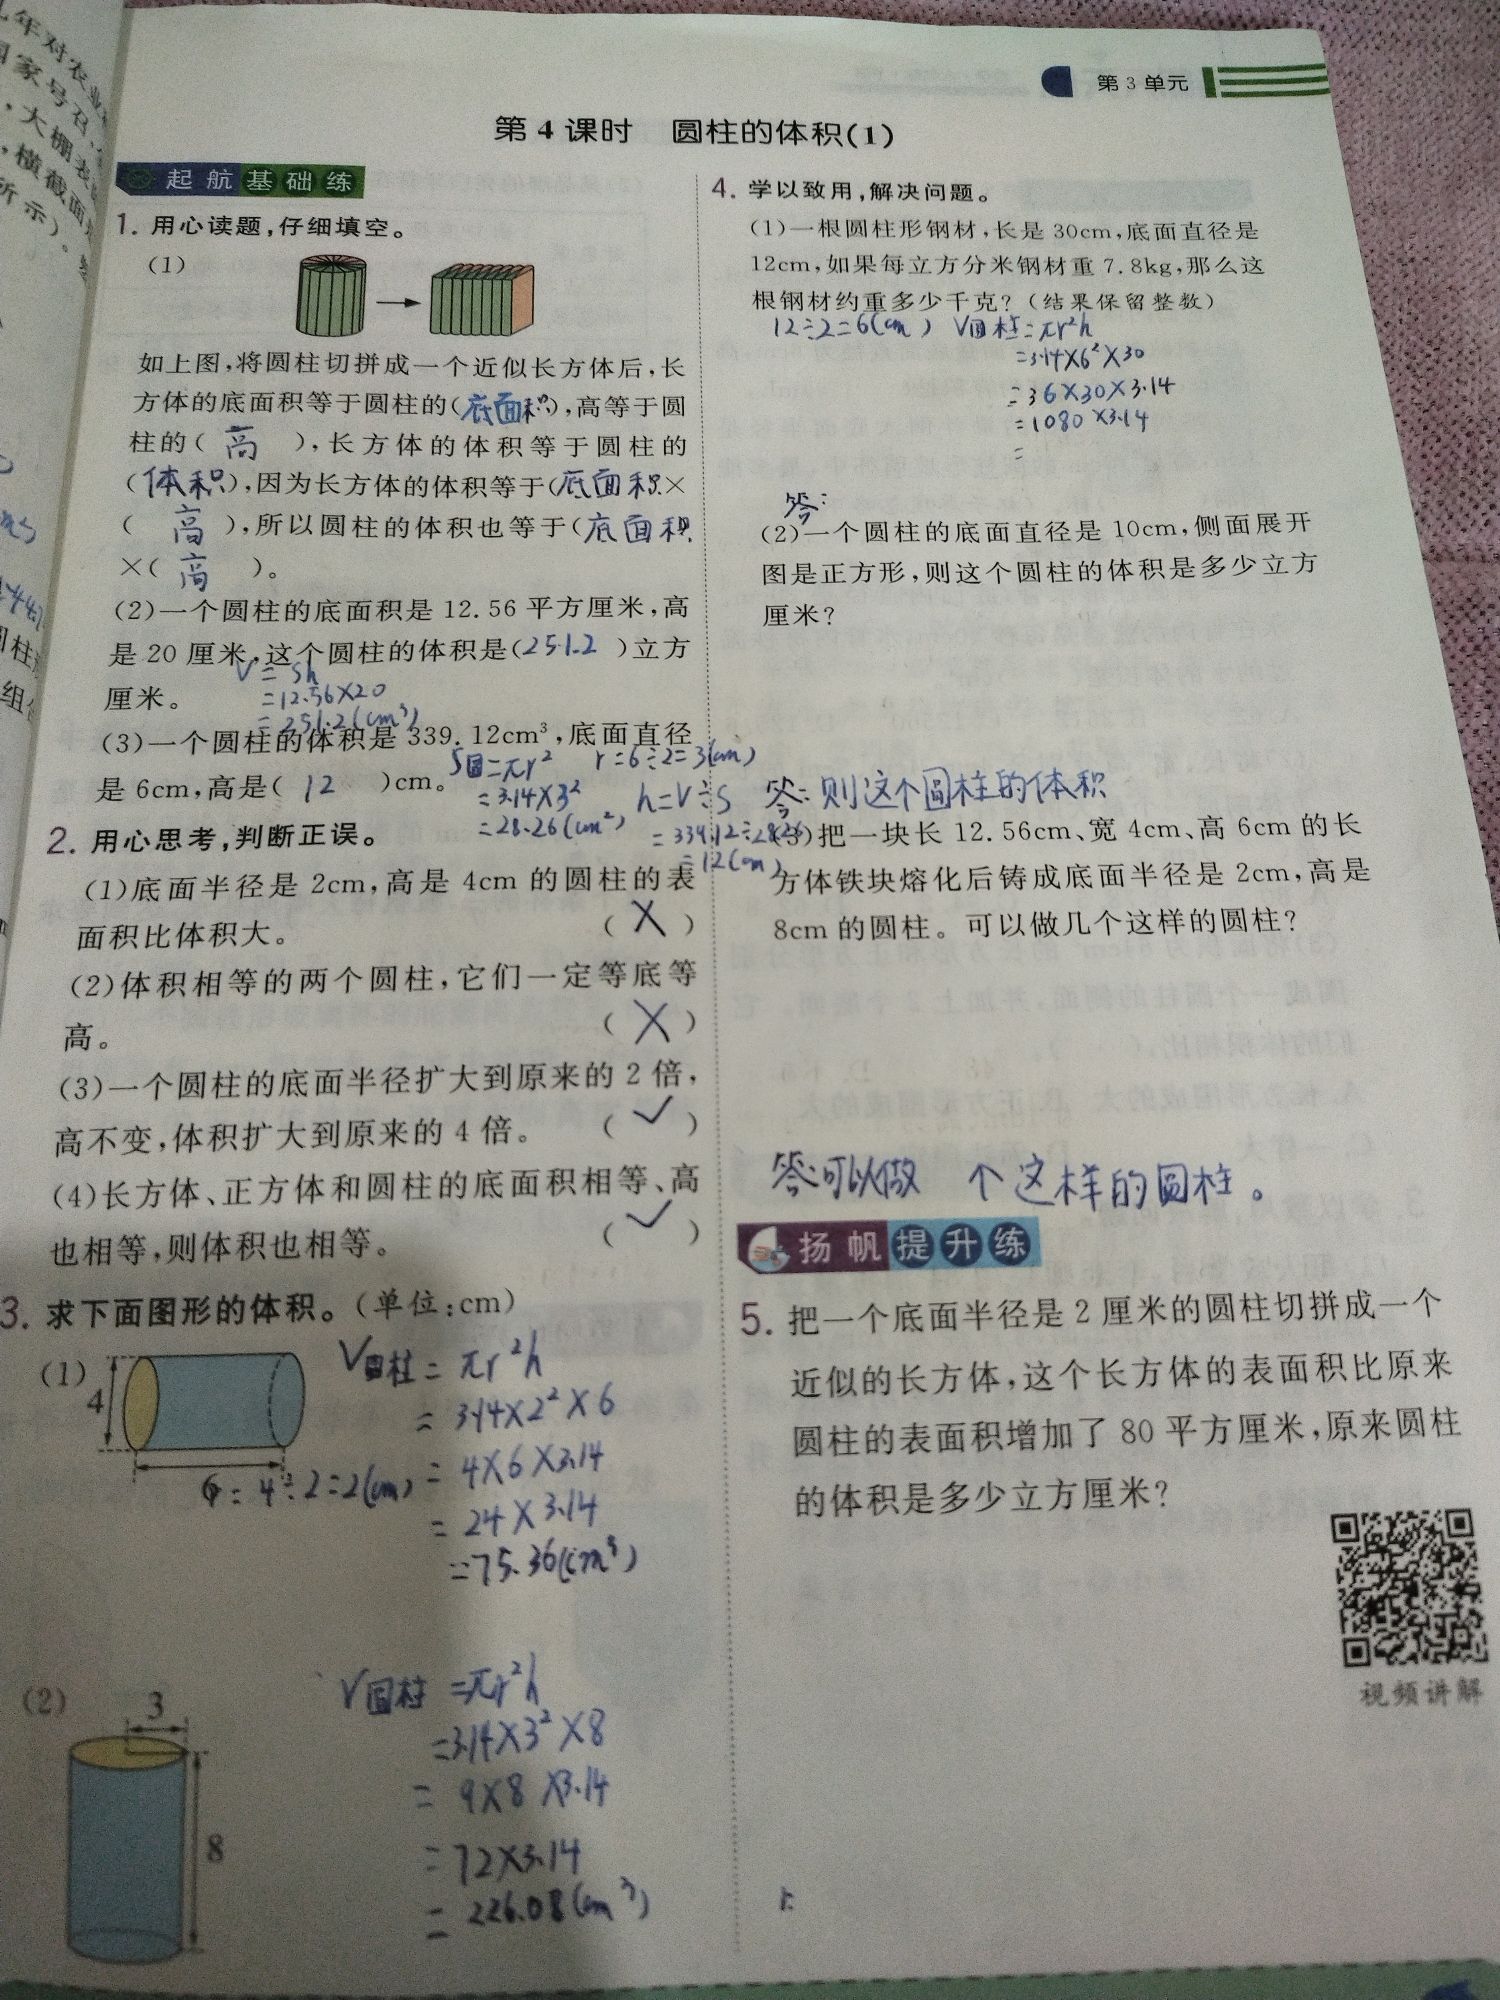 第3单元
第4课时 圆柱的体积(1)
起航基础练
1. 用心读题,仔细填空。
(1)
如上图,将圆柱切拼成一个近似长方体后,长
方体的底面积等于圆柱的(底面积),高等于圆
柱的( 高 ),长方体的体积等于圆柱的
(体积),因为长方体的体积等于(底面积×
( 高 ),所以圆柱的体积也等于(底面积
×( 高 )。
(2)一个圆柱的底面积是12.56平方厘米,高
是20厘米,这个圆柱的体积是(251.2 )立方
V=Sh
厘米。
=12.56×20
=251.2(cm³)
(3)一个圆柱的体积是339.12cm³,底面直径
是6cm,高是( 12 )cm。
S圆=πr²
=3.14×3²
=28.26(cm²)
r=6÷2=3(cm)
h=V÷S
=339.12÷28.26
=12(cm)
2. 用心思考,判断正误。
(1)底面半径是2cm,高是4cm的圆柱的表
面积比体积大。 ( × )
(2)体积相等的两个圆柱,它们一定等底等
高。 ( × )
(3)一个圆柱的底面半径扩大到原来的2倍,
高不变,体积扩大到原来的4倍。 ( ✓ )
(4)长方体、正方体和圆柱的底面积相等、高
也相等,则体积也相等。 ( ✓ )
3. 求下面图形的体积。(单位:cm)
(1)
4
6
= 4÷2=2(cm)
V圆柱=πr²h
=3.14×2²×6
=4×6×3.14
=24×3.14
=75.36(cm³)
(2)
3
8
V圆柱=πr²h
=3.14×3²×8
=9×8×3.14
=72×3.14
=226.08(cm³)
4. 学以致用,解决问题。
(1)一根圆柱形钢材,长是30cm,底面直径是
12cm,如果每立方分米钢材重7.8kg,那么这
根钢材约重多少千克?(结果保留整数)
12÷2=6(cm) V圆柱=πr²h
=3.14×6²×30
=36×30×3.14
=1080×3.14
=
答:
(2)一个圆柱的底面直径是10cm,侧面展开
图是正方形,则这个圆柱的体积是多少立方
厘米?
答:则这个圆柱的体积
(3)把一块长12.56cm、宽4cm、高6cm的长
方体铁块熔化后铸成底面半径是2cm,高是
8cm的圆柱。可以做几个这样的圆柱?
答:可以做 个这样的圆柱。
扬帆提升练
5. 把一个底面半径是2厘米的圆柱切拼成一个
近似的长方体,这个长方体的表面积比原来
圆柱的表面积增加了80平方厘米,原来圆柱
的体积是多少立方厘米?
视频讲解